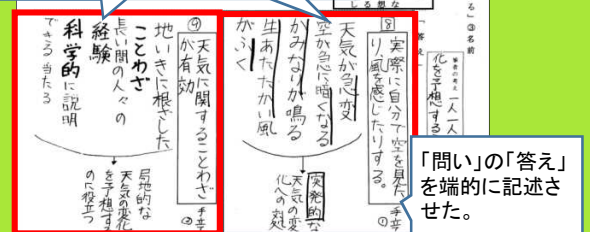 る」③名前
「答え」
筆者の考え 一人一人
化を予想する
8
実際に自分で空を見た
り、風を感じたりする。
手立
①
天気が急変
空が急に暗くなる
かみなりが鳴る
生あたたかい風
がふく
突発的な
天気の変
化への対処
9
天気に関することわざ
が有効
手立
②
地いきに根ざした
ことわざ
長い間の人々の
経験
科学的に説明
できる 当たる
局地的な
天気の変化
を予想する
のに役立つ
「問い」の「答え」
を端的に記述さ
せた。